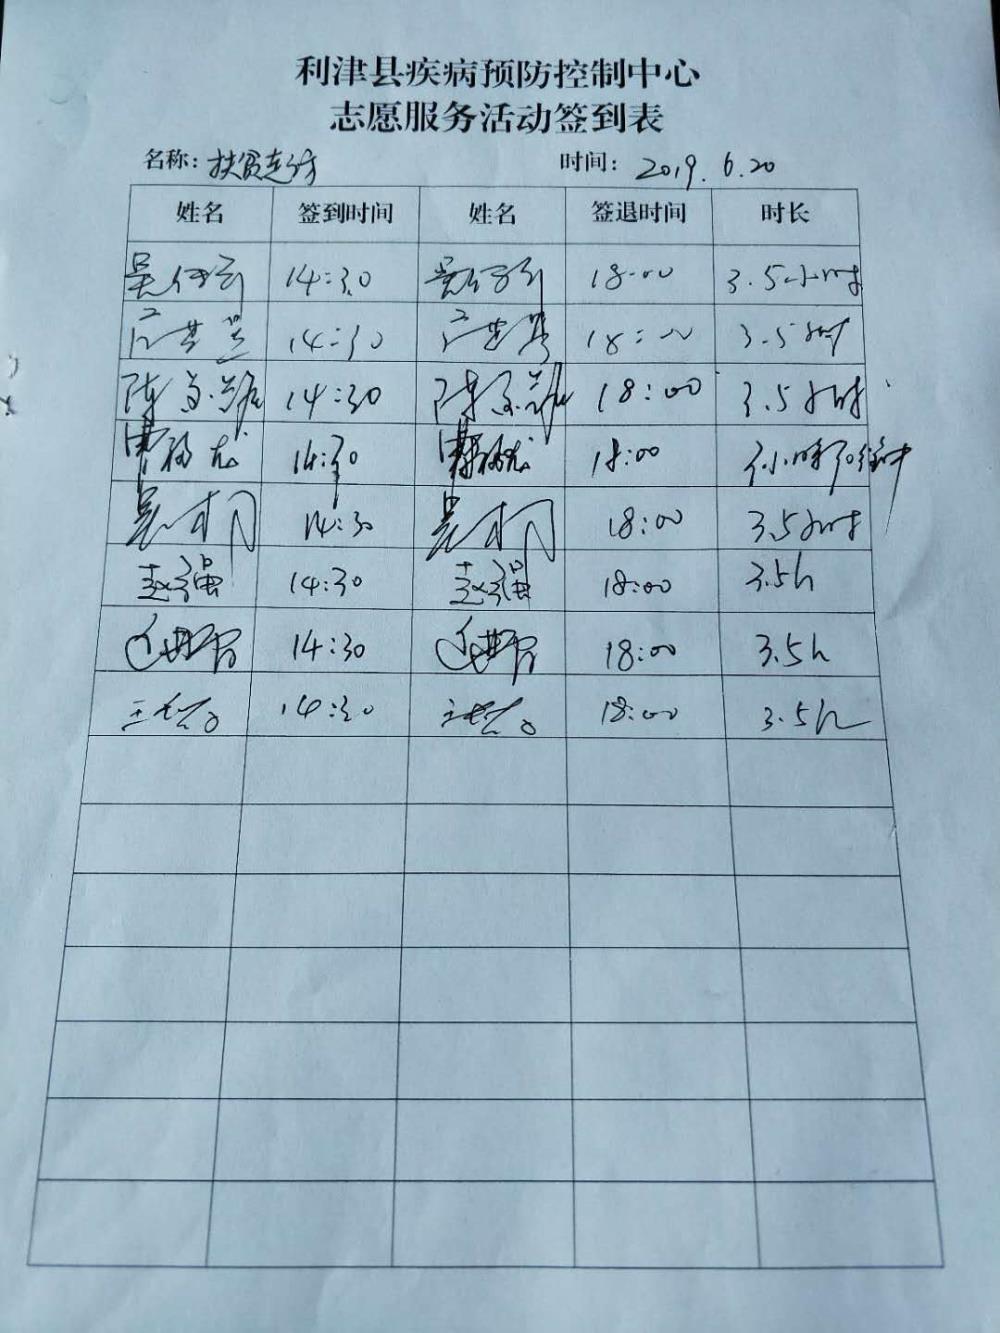 利津县疾病预防控制中心
志愿服务活动签到表
名称：扶贫走访 时间：2019.6.20
姓名 签到时间 姓名 签退时间 时长
14:30 18:00 3.5小时
14:30 18:00 3.5小时
陈 14:30 陈 18:00 3.5小时
14:30 18:00 3小时30分钟
吴桐 14:30 吴桐 18:00 3.5小时
赵强 14:30 赵强 18:00 3.5h
14:30 18:00 3.5h
王 14:30 王 18:00 3.5h